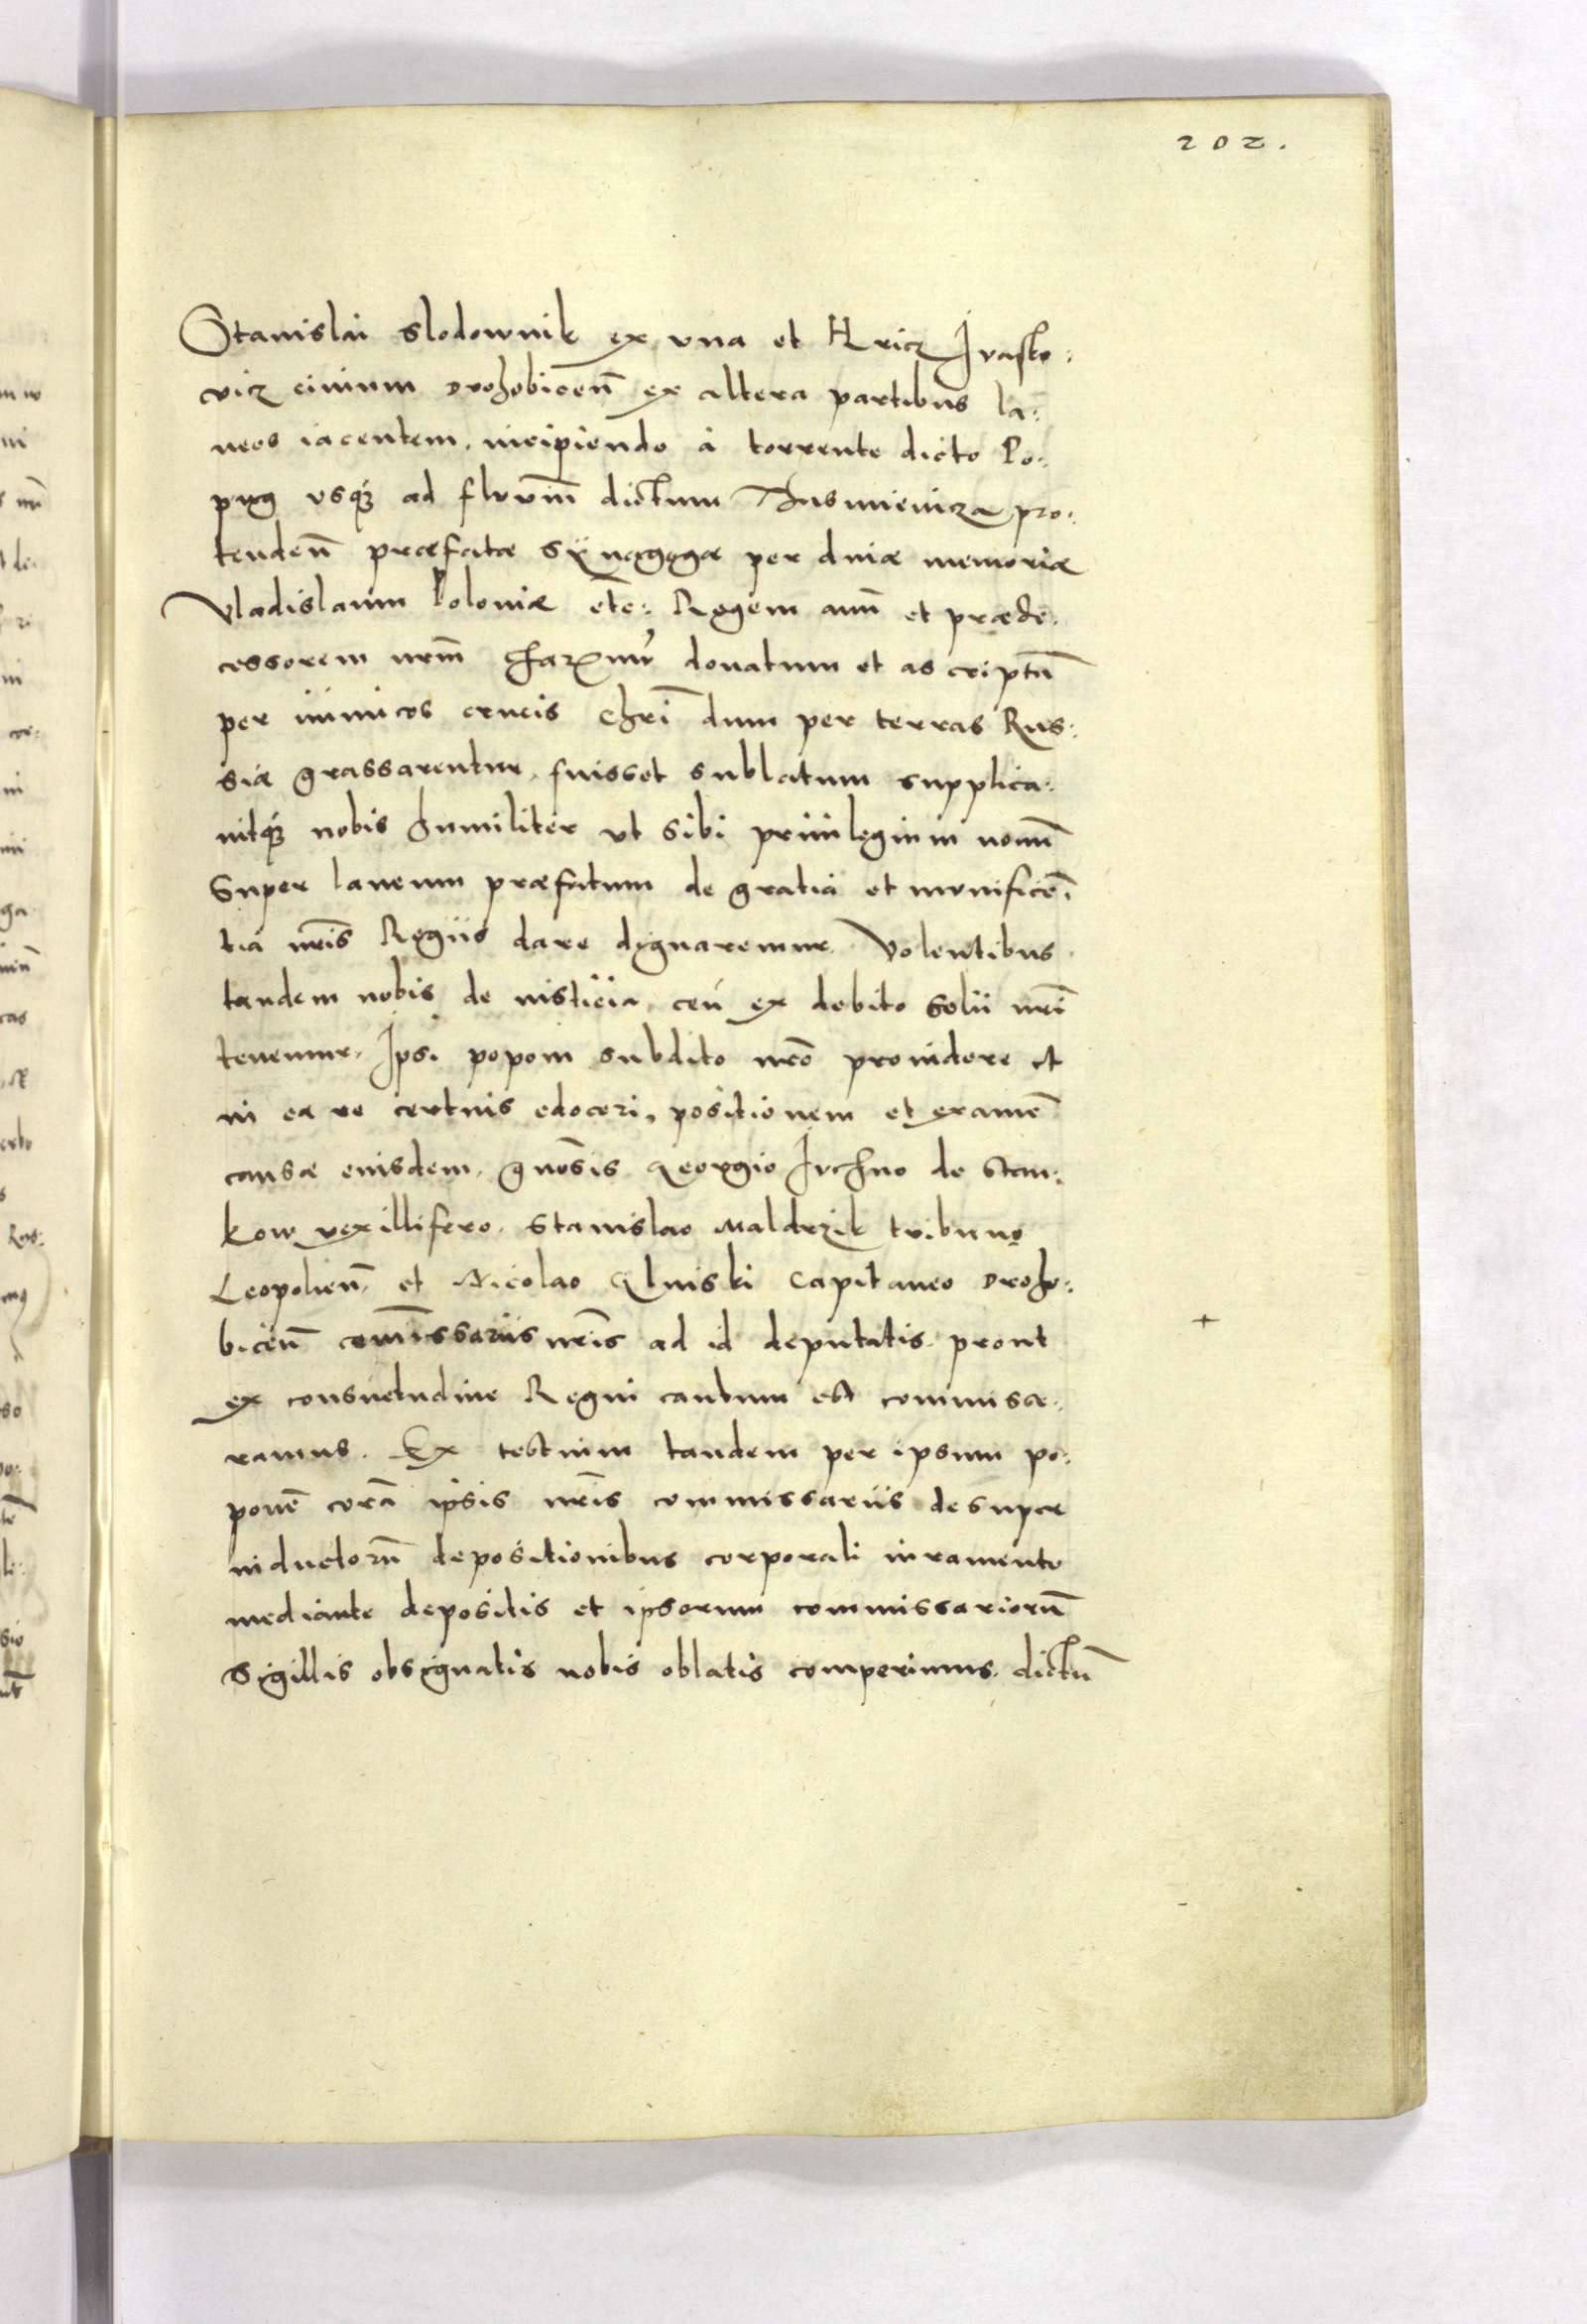 202.
Stanislai Slodownik ex vna et Hricz Ivasko:
vicz ciuium Drohobiceñ ex altera partibus la:
neos iacentem, incipiendo à torrente dicto Po:
pug vsq3 ad fluviū dictum Thismienicza pro:
tendeñ præfatæ synagogæ per diuæ memoriæ
Vladislaum Poloniæ etc: Regem auū et præde:
cessorem nrm̃ charmū donatum et ascriptū
per inimicos crucis Chri͂ dum per terras Rus:
siæ grassarentur, fuisset sublatum supplica:
uitq3 nobis humiliter vt sibi priuilegium nouū
super laneum præfatum de gratia et munificē:
tia nr̃is Regiis dare dignaremur. Volentibus
tandem nobis de iusticia, ceu ex debito solii nr̃i
tenemur, Ipsi poponi subdito nr̃o prouidere et
in ea re certuis edoceri, positionem et examē
causæ eiusdem, gnōsis Georgio Irchno de Stan:
kow vexillifero, Stanislao Maldrzik tribuno
Leopolieñ, et Nicolao Gluiski Capitaneo Droho:
biceñ comīssariis nr̃is ad id deputatis, prout
ex consuetudine Regni cautum est commisæ:
ramus. Ex testium tandem per ipsum po:
ponē corā ipsis nr̃is commissariis desuper
inductorū depositionibus corporali iuramento
mediante depositis et ipsorum commissariorū
Sigillis obsignatis nobis oblatis comperimus, dictū